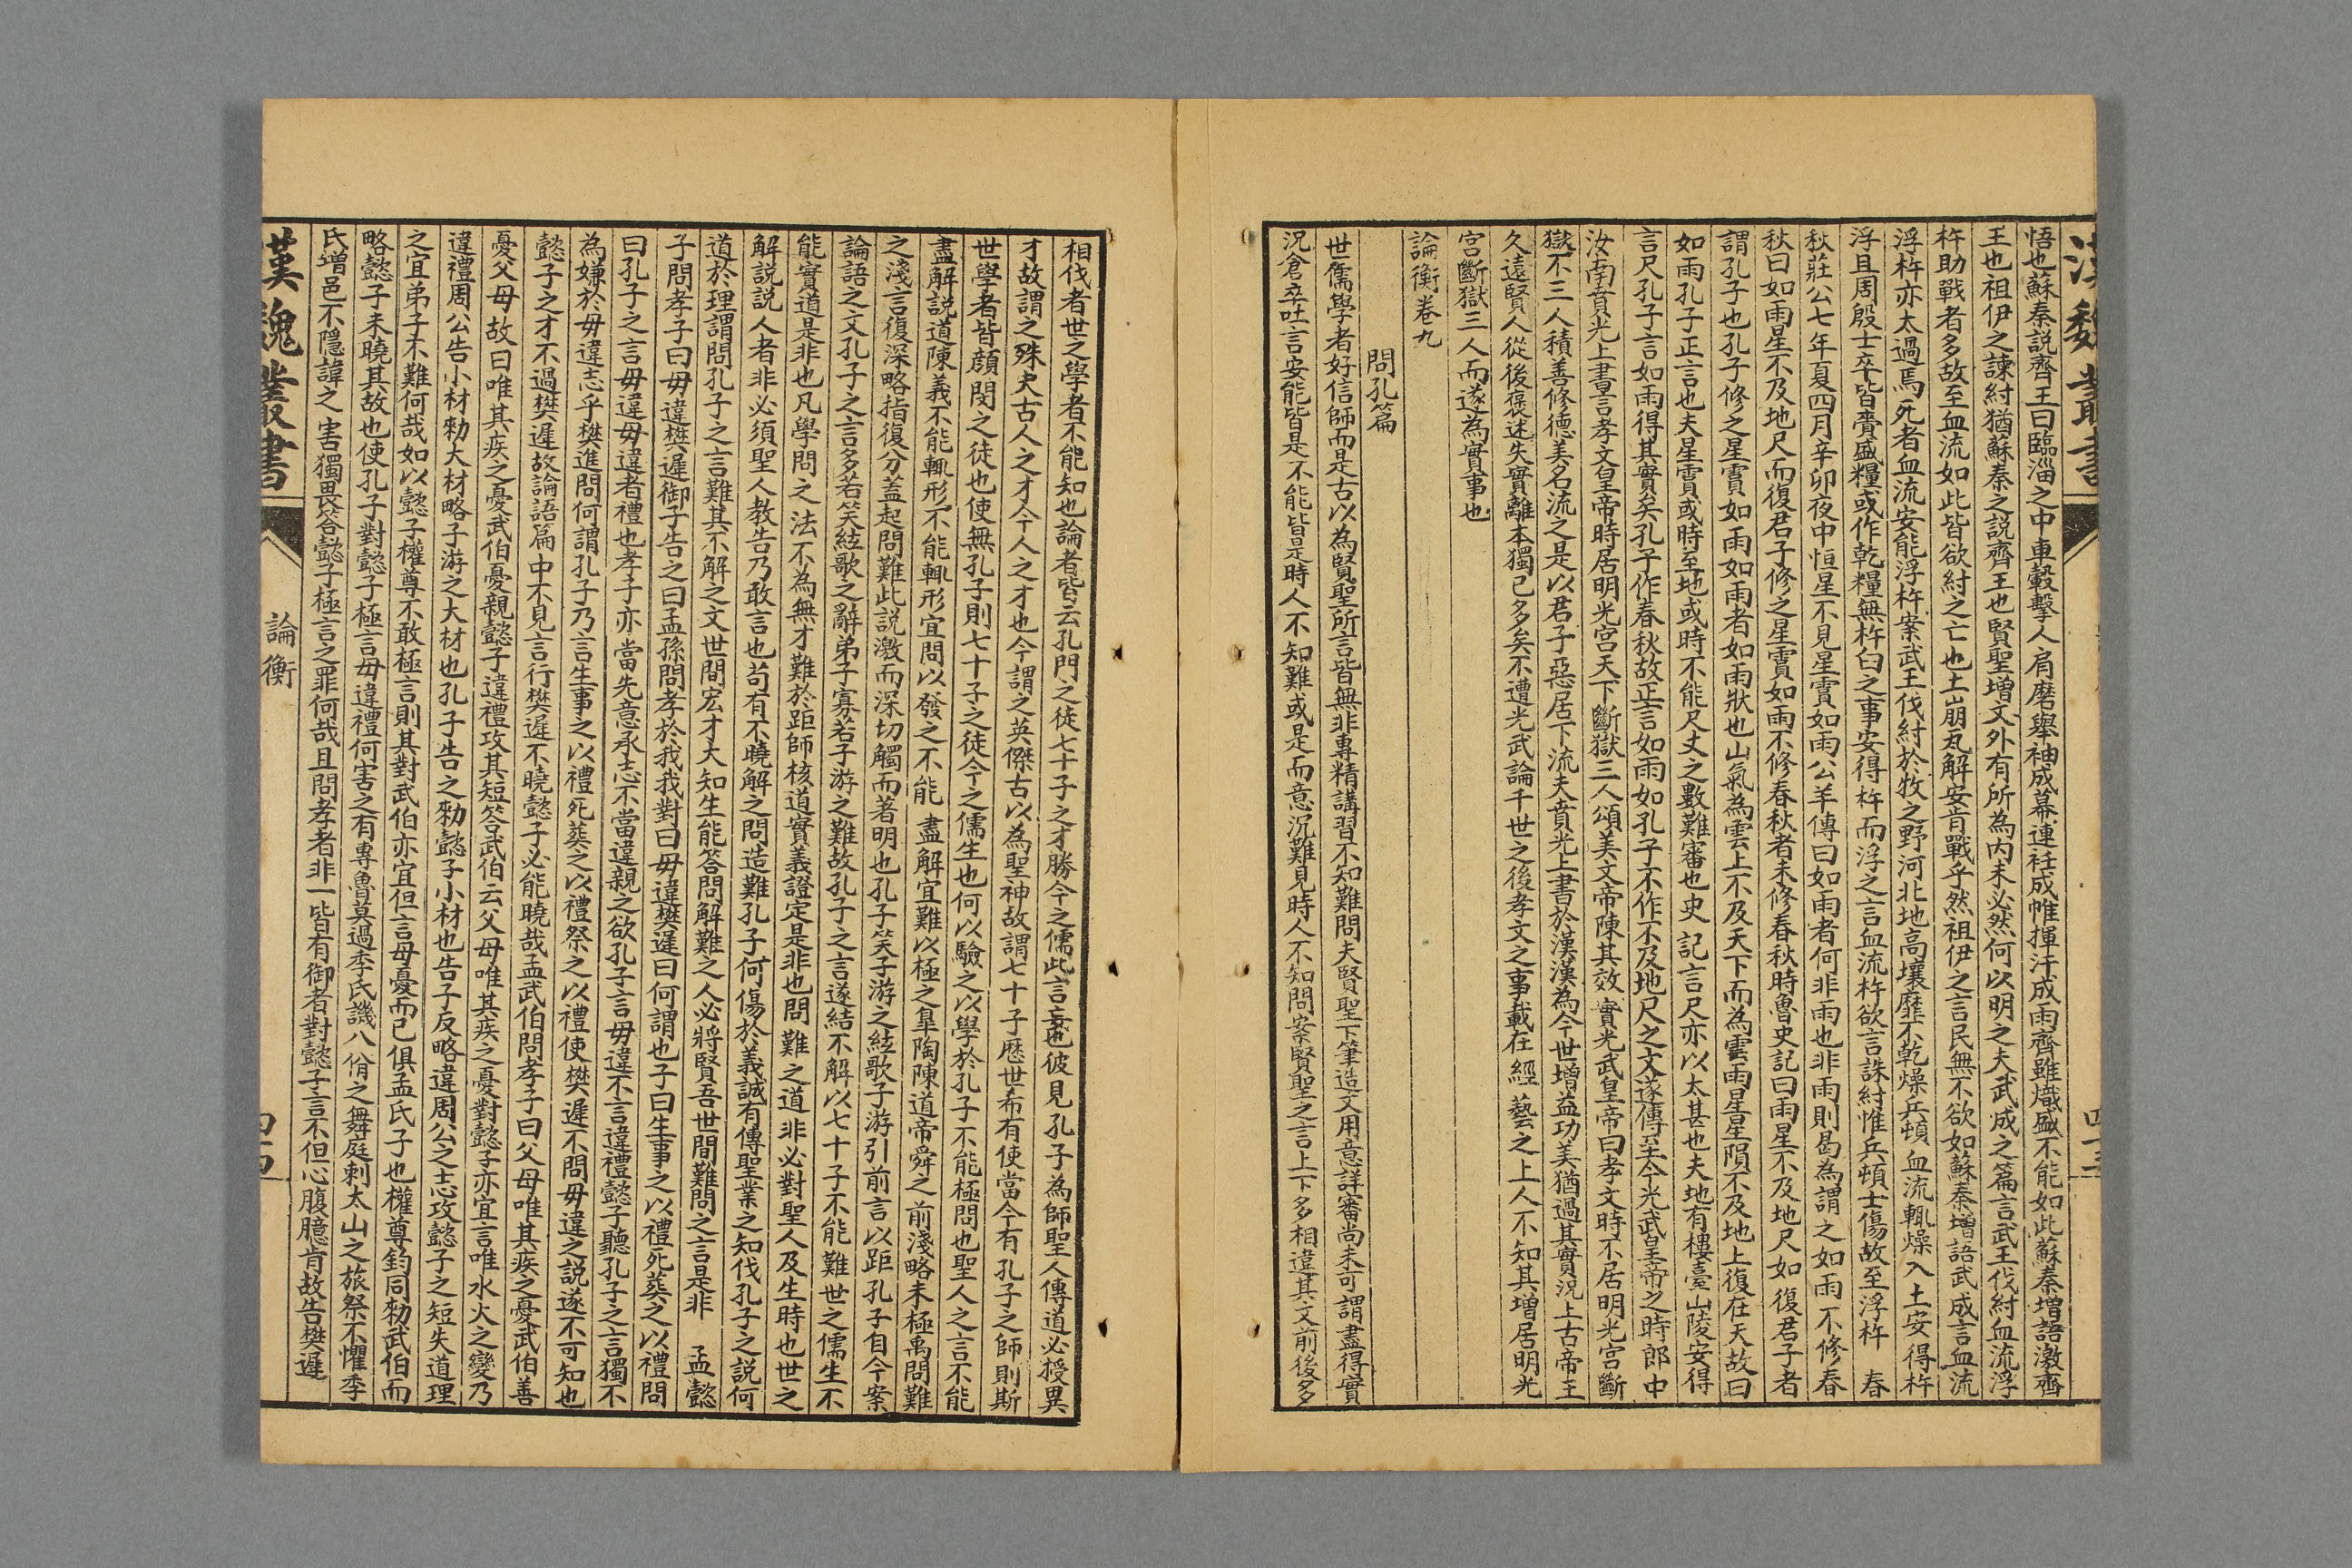 漢魏叢書
悟也蘇秦説齊王曰臨淄之中車轂擊人肩磨舉袖成幕連衽成帷揮汗成雨齊雖熾盛不能如此蘇秦増語激齊
王也祖伊之諫紂猶蘇秦之説齊王也賢聖増文外有所為内未必然何以明之夫武成之篇言武王伐紂血流浮
杵助戰者多故至血流如此皆欲紂之亡也土崩瓦解安肯戰乎然祖伊之言民無不欲如蘇秦増語武成言血流
浮杵亦太過焉死者血流安能浮杵案武王伐紂於牧之野河北地高壤靡不乾燥兵頓血流輒燥入土安得杵
浮且周殷士卒皆齎盛糧或作乾糧無杵臼之事安得杵而浮之言血流杵欲言誅紂惟兵頓士傷故至浮杵　春
秋莊公七年夏四月辛卯夜中恒星不見星霣如雨公羊傳曰如雨者何非雨也非雨則曷為謂之如雨不修春
秋曰如雨星不及地尺而復君子修之星霣如雨不修春秋者未修春秋時魯史記曰雨星不及地尺如復君子者
謂孔子也孔子修之星霣如雨如雨者如雨狀也山氣為雲上不及天下而為雲雨星星隕不及地上復在天故曰
如雨孔子正言也夫星霣或時至地或時不能尺丈之數難審也史記言尺亦以太甚也夫地有樓臺山陵安得
言尺孔子言如雨得其實矣孔子作春秋故正言如雨如孔子不作不及地尺之文遂傳至今光武皇帝之時郎中
汝南賁光上書言孝文皇帝時居明光宫天下斷獄三人頌美文帝陳其效實光武皇帝曰孝文時不居明光宫斷
獄不三人積善修德美名流之是以君子惡居下流夫賁光上書於漢漢為今世増益功美猶過其實況上古帝王
久遠賢人從後褒述失實離本獨已多矣不遭光武論千世之後孝文之事載在經藝之上人不知其増居明光
宫斷獄三人而遂為實事也
論衡卷九
問孔篇
世儒學者好信師而是古以為賢聖所言皆無非專精講習不知難問夫賢聖下筆造文用意詳審尚未可謂盡得實
況倉卒吐言安能皆是不能皆是時人不知難或是而意沉難見時人不知問案賢聖之言上下多相違其文前後多
相伐者世之學者不能知也論者皆云孔門之徒七十子之才勝今之儒此言妄也彼見孔子為師聖人傳道必授異
才故謂之殊夫古人之才今人之才也今謂之英傑古以為聖神故謂七十子歴世希有使當今有孔子之師則斯
世學者皆顔閔之徒也使無孔子則七十子之徒今之儒生也何以驗之以學於孔子不能極問也聖人之言不能
盡解説道陳義不能輒形不能輒形宜問以發之不能　盡解宜難以極之皐陶陳道帝舜之前淺略未極禹問難
之淺言復深略指復分蓋起問難此説激而深切觸而著明也孔子笑子游之絃歌子游引前言以距孔子自今案
論語之文孔子之言多若笑絃歌之辭弟子寡若子游之難故孔子之言遂結不解以七十子不能難世之儒生不
能實道是非也凡學問之法不為無才難於距師核道實義證定是非也問難之道非必對聖人及生時也世之
解説説人者非必須聖人教告乃敢言也苟有不曉解之問造難孔子何傷於義誠有傳聖業之知伐孔子之説何
道於理謂問孔子之言難其不解之文世間宏才大知生能答問解難之人必將賢吾世間難問之言是非　孟懿
子問孝子曰毋違樊遲御子告之曰孟孫問孝於我我對曰毋違樊遲曰何謂也子曰生事之以禮死葬之以禮問
曰孔子之言毋違毋違者禮也孝子亦當先意承志不當違親之欲孔子言毋違不言違禮懿子聽孔子之言獨不
為嫌於毋違志乎樊進問何謂孔子乃言生事之以禮死葬之以禮祭之以禮使樊遲不問毋違之説遂不可知也
懿子之才不過樊遲故論語篇中不見言行樊遲不曉懿子必能曉哉孟武伯問孝子曰父母唯其疾之憂武伯善
憂父母故曰唯其疾之憂武伯憂親懿子違禮攻其短答武伯云父母唯其疾之憂對懿子亦宜言唯水火之變乃
違禮周公告小材勑大材略子游之大材也孔子告之勑懿子小材也告子反略違周公之志攻懿子之短失道理
之宜弟子不難何哉如以懿子權尊不敢極言則其對武伯亦宜但言毋憂而已俱孟氏子也權尊鈞同勑武伯而
略懿子未曉其故也使孔子對懿子極言毋違禮何害之有專魯莫過季氏譏八佾之舞庭刺太山之旅祭不懼季
氏増邑不隱諱之害獨畏答懿子極言之罪何哉且問孝者非一皆有御者對懿子言不但心腹臆肯故告樊遲
漢魏叢書
論衡
四四